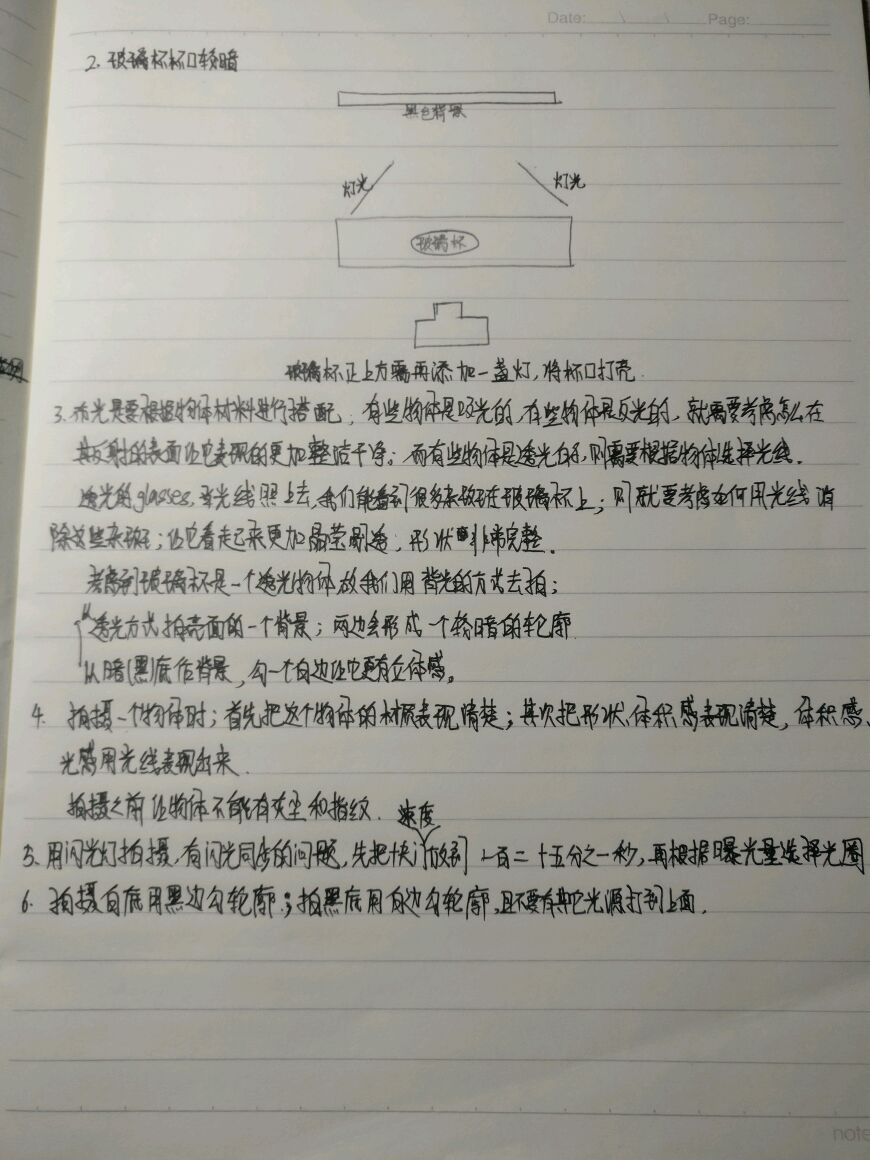 Date: \ \ Page:
2. 玻璃杯杯口较暗
黑色背景
灯光 灯光
玻璃杯
玻璃杯正上方需再添加一盏灯,将杯口打亮.
3. 布光是要根据物体材料进行搭配,有些物体是吸光的,有些物体是反光的,就需要考虑怎么在
其反射的表面让它表现的更加整洁干净;而有些物体是透光的,则需要根据物体选择光线.
透光的glasses,当光线照上去,我们能看到很多杂斑在玻璃杯上;则就要考虑如何用光线消
除这些杂斑;让它看起来更加晶莹剔透,形状非常完整。
考虑到玻璃杯是一个透光物体故我们用背光的方式去拍;
透光方式拍亮面的一个背景;两边会形成一个较暗的轮廓
以暗(黑)底作背景,勾一个白边让它更有立体感。
4. 拍摄一个物体时;首先把这个物体的材质表现清楚;其次把形状、体积感表现清楚,体积感、
光感用光线表现出来.
拍摄之前让物体不能有灰尘和指纹.
速度
5. 用闪光灯拍摄,有闪光同步的问题,先把快门放到 一百二十五分之一秒,再根据曝光量选择光圈
6. 拍摄白底用黑边勾轮廓;拍黑底用白边勾轮廓,且不要有其它光源打到上面.
note